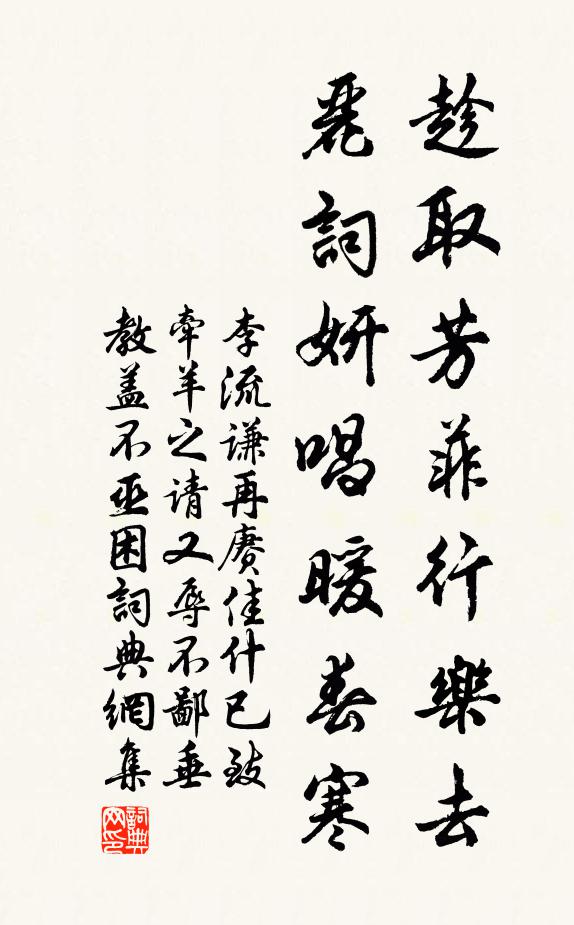 趁取芳菲行樂去
麗詞妍唱暖春寒
李流謙再賡佳什已致
牽羊之請又辱不鄙垂
教盖不亟困詞典網集
詞典
网印